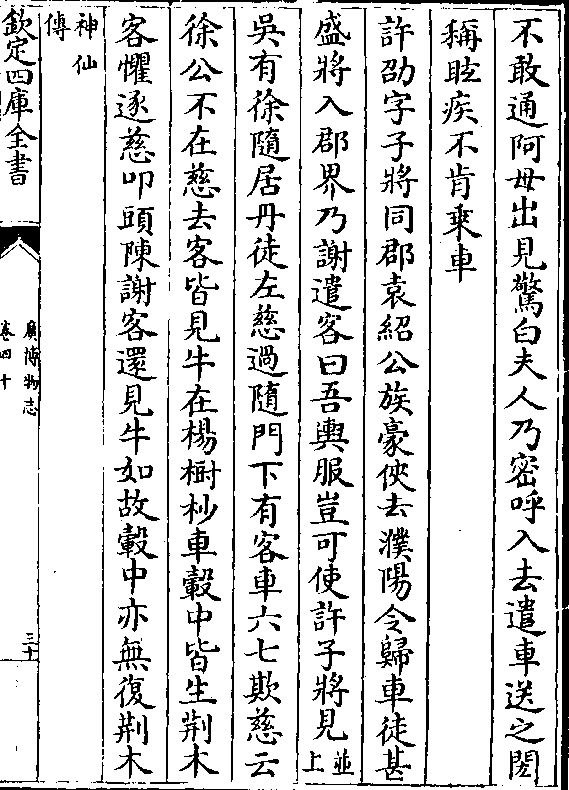 不敢通阿母出見驚白夫人乃密呼入去遣車送之閎
稱眩疾不肯乘車
許劭字子將同郡袁紹公族豪俠去濮陽令歸車徒甚
盛將入郡界乃謝遣客曰吾輿服豈可使許子將見並上
吳有徐隨居丹徒左慈過隨門下有客車六七欺慈云
徐公不在慈去客皆見牛在楊樹杪車轂中皆生荆木
客懼逐慈叩頭陳謝客還見牛如故轂中亦無復荆木
神仙傳
欽定四庫全書
廣博物志
卷四十
三十